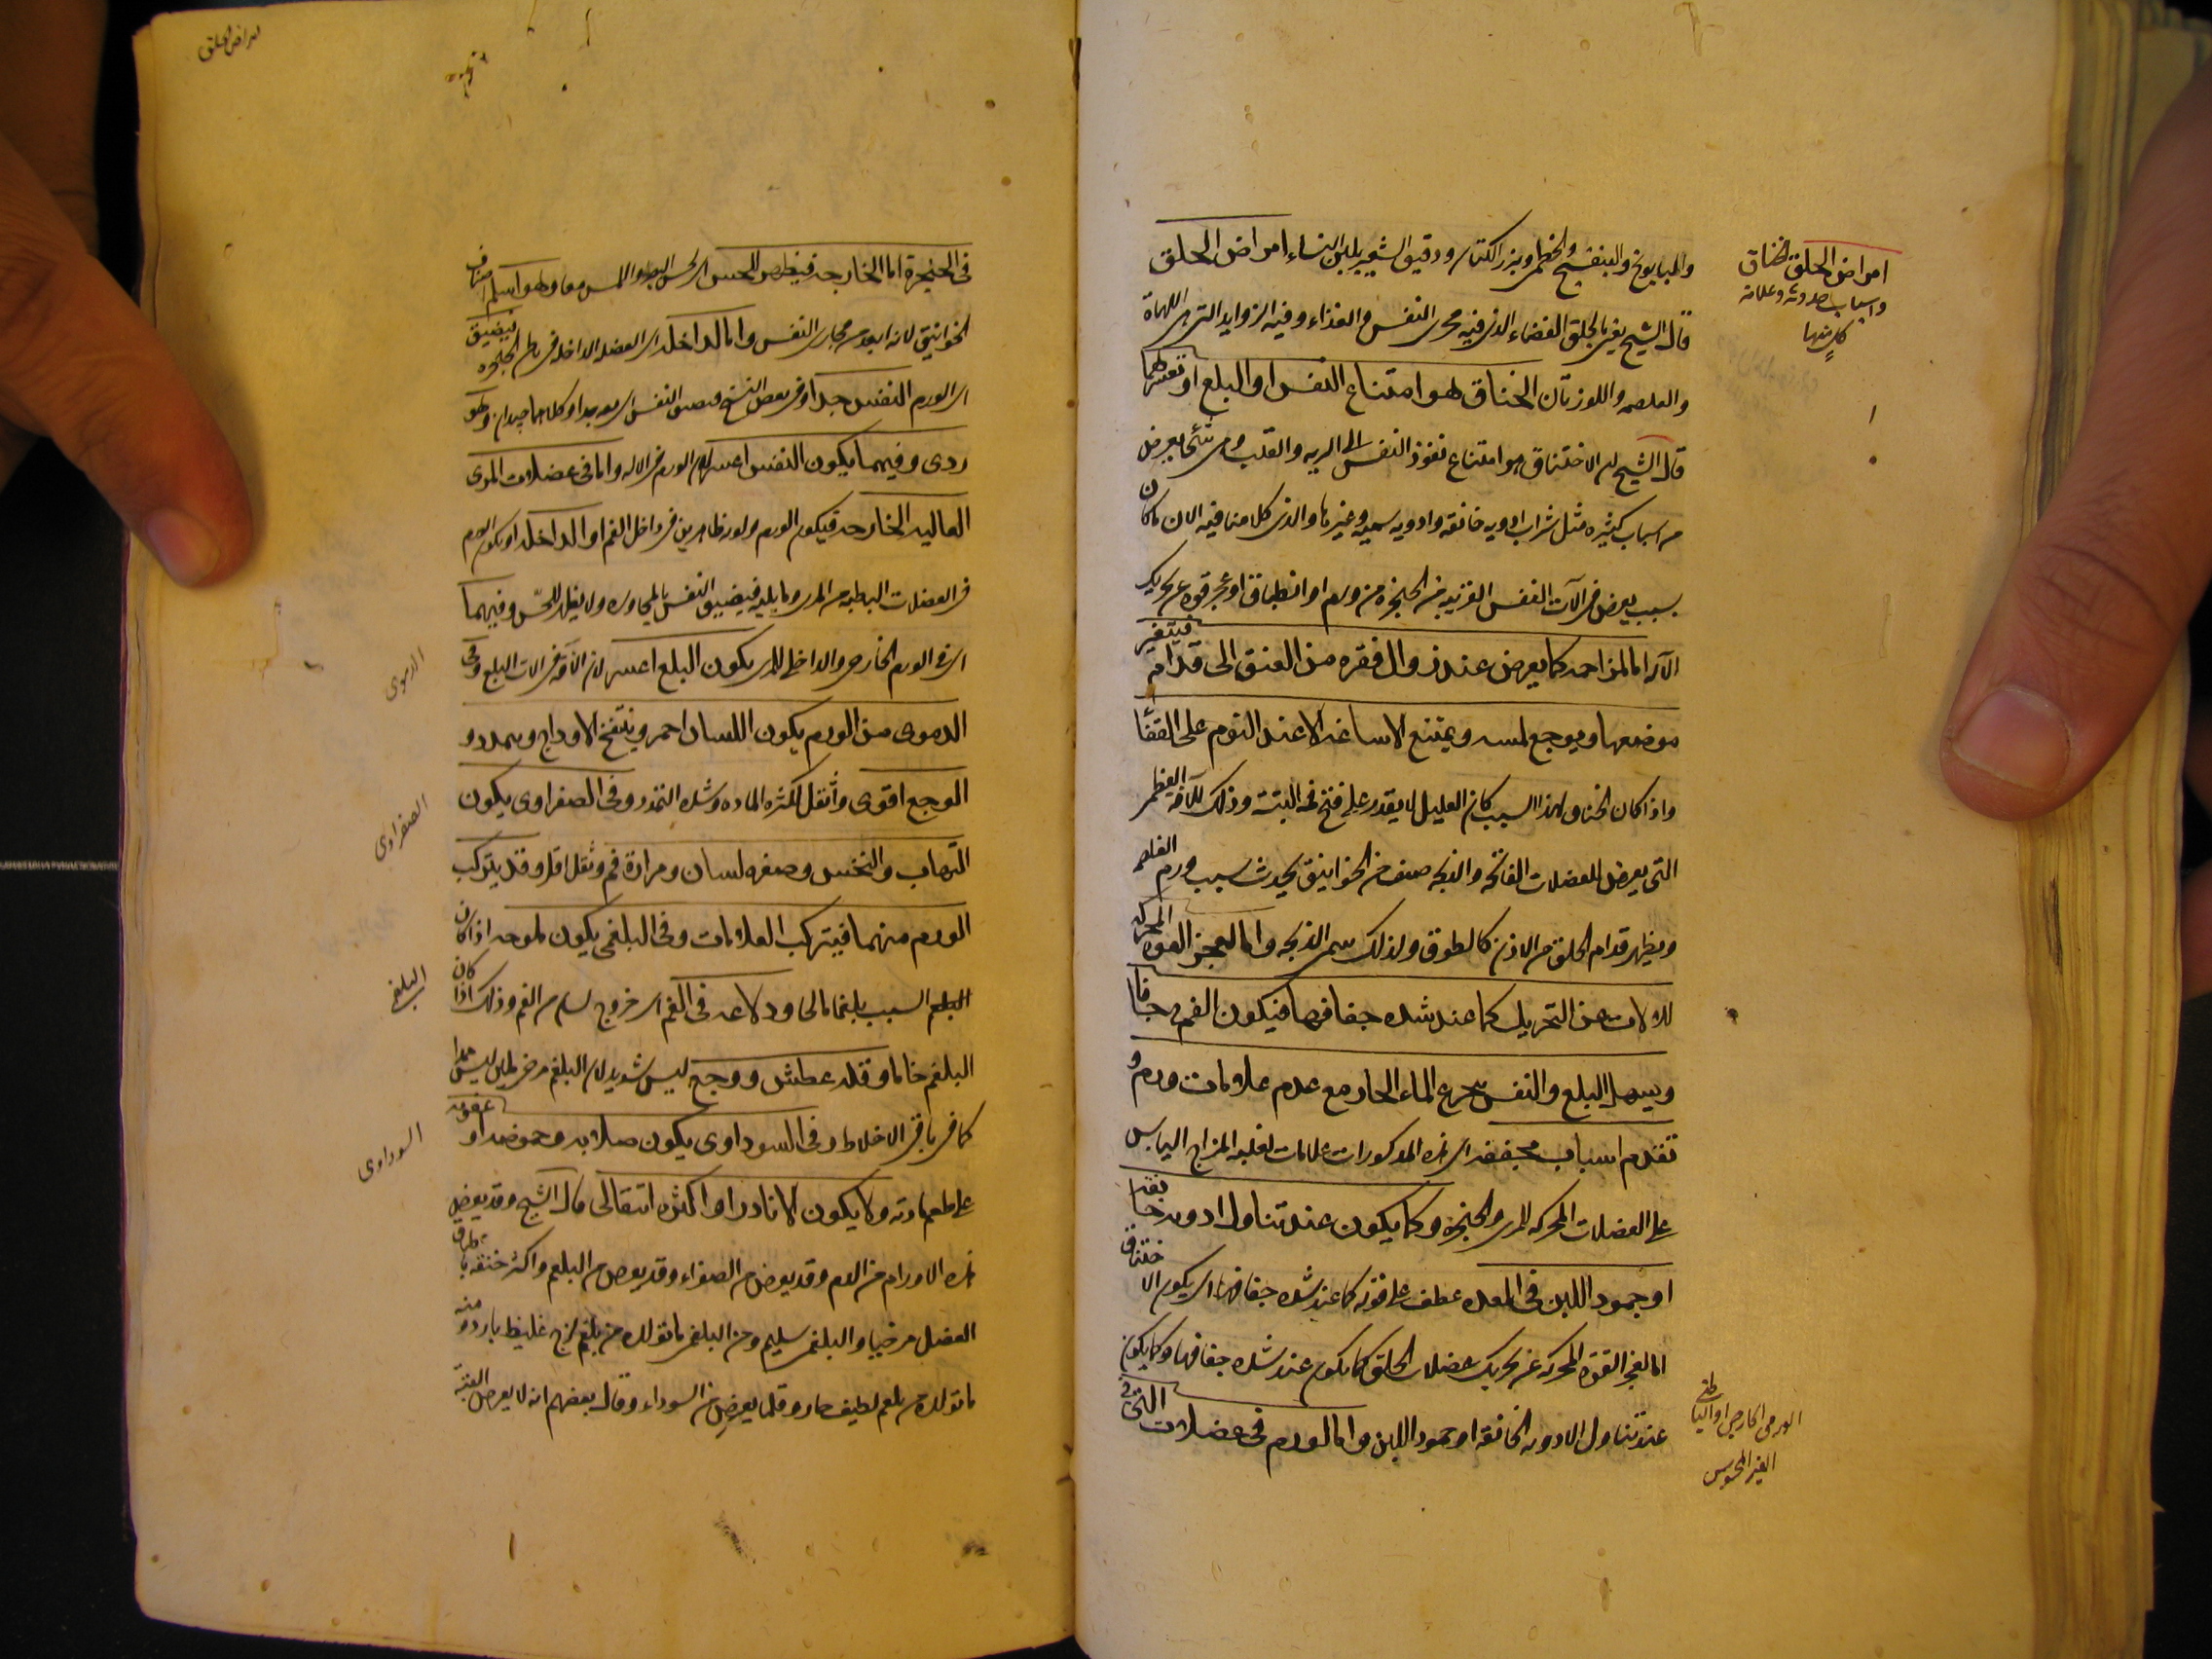 امراض الحلق الخناق
واسباب حدوثه وعلامة
كل منها
والبابونج والبنفسج والخطمى وبزر الكتان ودقيق الشعير بلبن النساء امراض الحلق
قال الشيخ يعنى بالحلق الفضاء الذى فيه مجرى النفس والغذاء وفيه الزوايد التى هى اللهاة
والغلصمه واللوزتان الخناق هو امتناع النفس او البلع او تعسرهما
قال الشيخ ان الاختناق هو امتناع نفوذ النفس الى الريه والقلب وهى شئ يعرض
من اسباب كثيره مثل شراب ادويه خانقه وادويه سميه وغيرها والذى كلامنا فيه الان ما كان
بسبب يعرض فى آلات النفس القريبه من الحنجره من ورم او انطباق او عجز قوه عن تحريك
الآله اما لمزاحمه كما يعرض عند زوال فقره من العنق الى قدام فيتغير
موضعها ويوجع لمسه ويمتنع الاساغه الا عند النوم على القفا
واذا كان الخناق لهذا السبب كان العليل لا يقدر على فتح فمه البتة وذلك للآفه العظمى
التى يعرض للعضلات الفاتحه والذبحه صنف من الخوانيق يحدث بسبب ورم الغلصمه
ويظهر قدام الحلق من الاذن كالطوق ولذلك سمى الذبحه واما لعجز القوه المحركه
للالات عن التحريك كما عند شده جفافها فيكون الفم جافا
ويسهل البلع والنفس بتجرع الماء الحار مع عدم علامات ورم و
تقدم اسباب مجففه اى هذه المذكورات علامات لغلبه المزاج اليابس
على العضلات المحركه للمرى والحنجره وكما يكون عند تناول ادويه خانقه
او جمود اللبن فى المعده عطف على قوله كما عند شده جفافها اى يكون الاختناق
اما لعجز القوه المحركه عن تحريك عضلات الحلق كما يكون عند شده جفافها وكما يكون
عند تناول الادويه الخانقه او جمود اللبن واما لورم فى عضلات التى
الورمى الخارجى او الباطنى
الغير المحسوس
امراض الحلق
فى الحنجرة اما الخارجه فيظهر للحس اى لحس البصر واللمس معا وهو اسلم اصناف
الخوانيق لانه ابعد من مجارى النفس واما الداخله اى العضله الداخله فى باطن الحنجره فيضيق
اى الورم النفس جدا وفى بعض النسخ فيضيق النفس اى معه جدا وكلاهما جيدان وهو
ردى وفيهما يكون النفس اعسر لان الورم فى الاله واما فى عضلات المرى
العاليه الخارجه فيكون الورم والوجه ظاهرين فى داخل الفم او الداخله او يكون الورم
فى العضلات الباطنه من المرى وما يليه فيضيق النفس بالمجاوره ولا يظهر للحس وفيهما
اى فى الورم الخارجى والداخلى للمرى يكون البلع اعسر لان الآفه فى الات البلع وفى
الدموى من الورم يكون اللسان احمر وينتفخ الاوداج ويمدد و
الوجع اقوى واثقل لكثره الماده وشده التمدد وفى الصفراوى يكون
التهاب والنخس وصفره لسان ومرارة فم وثقل اقل وقد يتركب
الورم منهما فيتركب العلامات وفى البلغمى يكون ملوحه اذا كان
السبب بلغما مالحا ودلاعه فى الفم اى خروج لسان من الفم وذلك اذا كان
البلغم خاما وقله عطش ووجع ليس شديد لان البلغم مرخ ملين ليس حدا
كما فى باقى الاخلاط وفى السوداوى يكون صلابه وحموضه او عفوصه
على طعم مادته ولا يكون الا نادرا واكثره انتقالى قال الشيخ وقد يعرض
هذه الاورام من الدم وقد يعرض من الصفراء وقد يعرض من البلغم واكثر خنقه بانطباق
العضل مرخيا والبلغمى سليم ومن البلغمى ما تولده من بلغم لزج غليظ بارد ومنه
ما تولده من بلغم لطيف حار وقلما يعرض من السوداء وقال بعضهم انه لا يعرض البتة
الدموى
الصفراوى
البلغمى
السوداوى